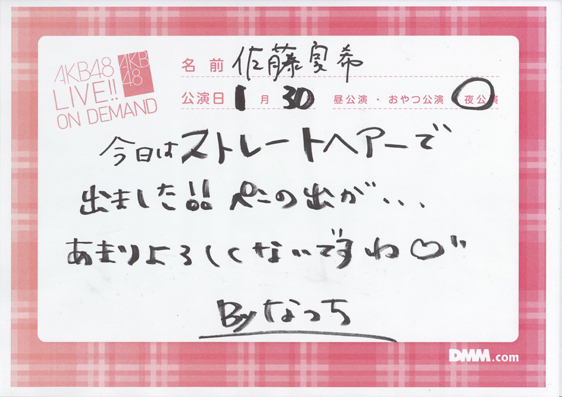 AKB48
LIVE!!
ON DEMAND
AKB
48
名前 佐藤夏希
公演日 1月30 昼公演・おやつ公演・夜公演
今日はストレートヘアーで
出ました!! ペンの出が...
あまりよろしくないですね♡"
Byなっち
DMM.com